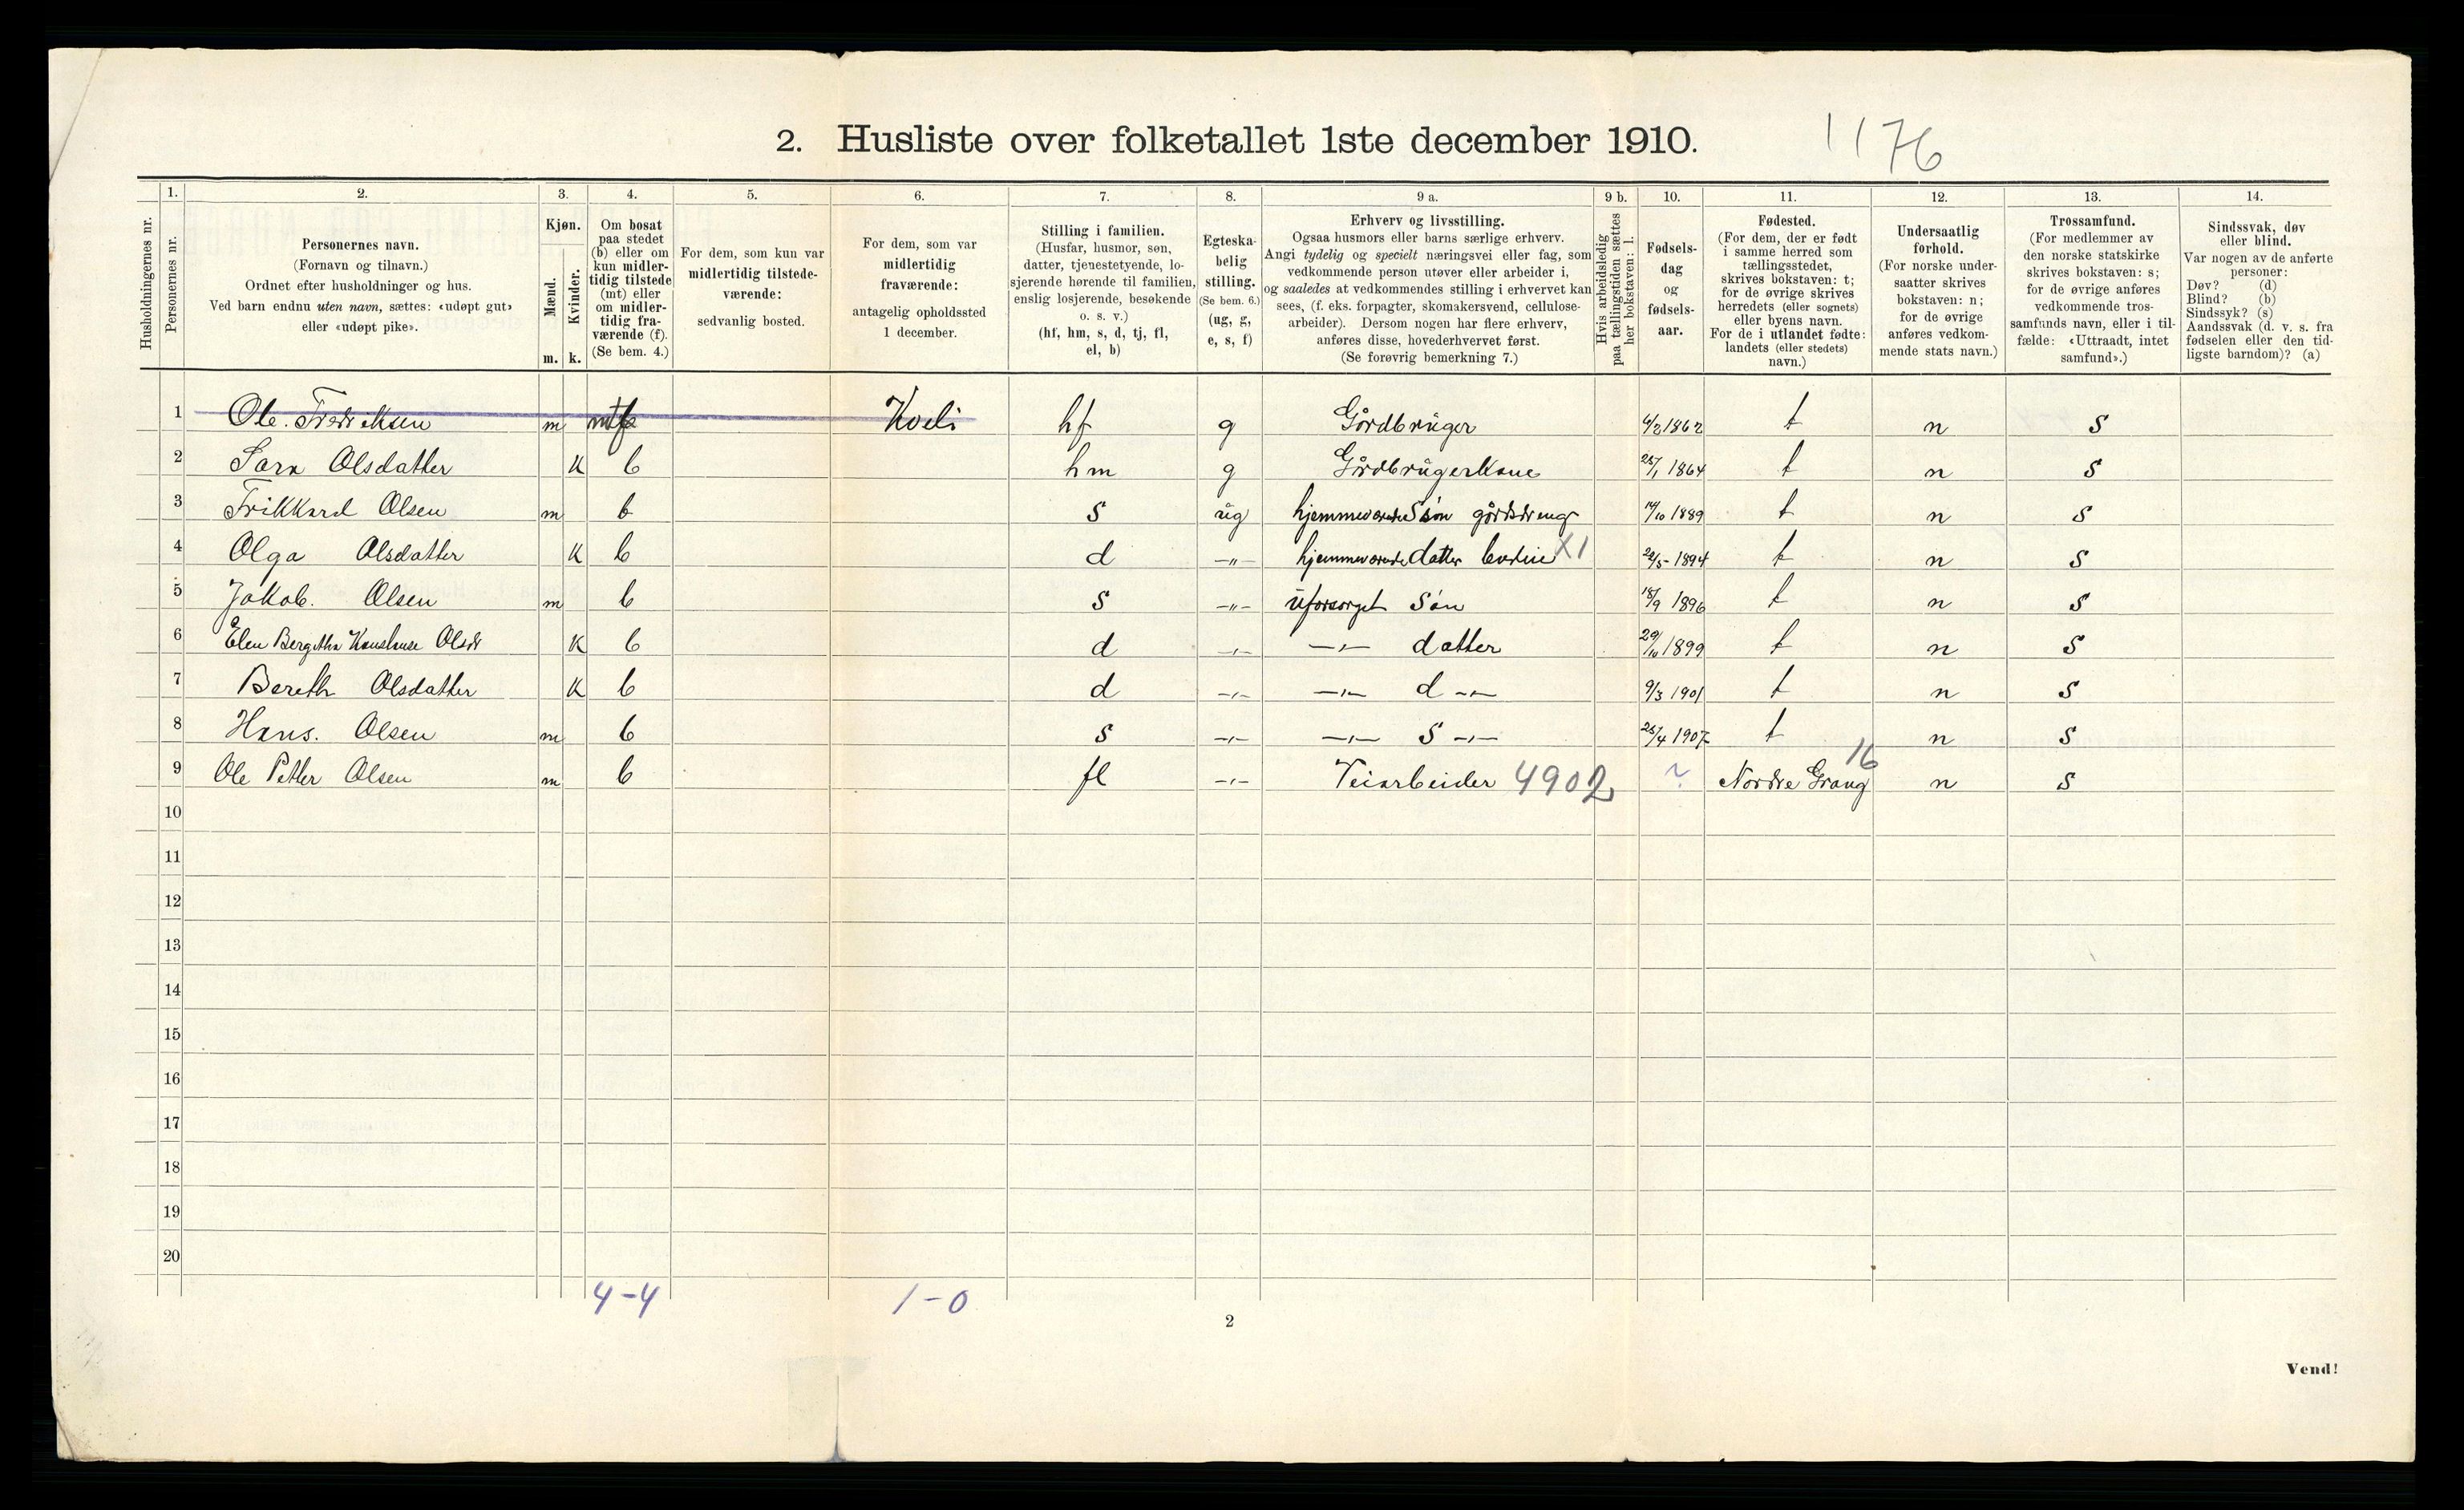 2. Husliste over folketallet 1ste december 1910.
1176
Husholdningernes nr.
1.
Personernes nr.
2.
Personernes navn.
(Fornavn og tilnavn.)
Ordnet efter husholdninger og hus.
Ved barn endnu uten navn, sættes: «udøpt gut»
eller «udøpt pike».
3.
Kjøn.
Mænd.
Kvinder.
m. k.
4.
Om bosat
paa stedet
(b) eller om
kun midler-
tidig tilstede
(mt) eller
om midler-
tidig fra-
værende (f).
(Se bem. 4.)
5.
For dem, som kun var
midlertidig tilstede-
værende:
sedvanlig bosted.
6.
For dem, som var
midlertidig
fraværende:
antagelig opholdssted
1 december.
7.
Stilling i familien.
(Husfar, husmor, søn,
datter, tjenestetyende, lo-
sjerende hørende til familien,
enslig losjerende, besøkende
o. s. v.)
(hf, hm, s, d, tj, fl,
el, b)
8.
Egteska-
belig
stilling.
(Se bem. 6.)
(ug, g,
e, s, f)
9 a.
Erhverv og livsstilling.
Ogsaa husmors eller barns særlige erhverv.
Angi tydelig og specielt næringsvei eller fag, som
vedkommende person utøver eller arbeider i,
og saaledes at vedkommendes stilling i erhvervet kan
sees, (f. eks. forpagter, skomakersvend, cellulose-
arbeider). Dersom nogen har flere erhverv,
anføres disse, hovederhvervet først.
(Se forøvrig bemerkning 7.)
9 b.
Hvis arbeidsledig
paa tællingstiden sættes
her bokstaven: l.
10.
Fødsels-
dag
og
fødsels-
aar.
11.
Fødested.
(For dem, der er født
i samme herred som
tællingsstedet,
skrives bokstaven: t;
for de øvrige skrives
herredets (eller sognets)
eller byens navn.
For de i utlandet fødte:
landets (eller stedets)
navn.)
12.
Undersaatlig
forhold.
(For norske under-
saatter skrives
bokstaven: n;
for de øvrige
anføres vedkom-
mende stats navn.)
13.
Trossamfund.
(For medlemmer av
den norske statskirke
skrives bokstaven: s;
for de øvrige anføres
vedkommende tros-
samfunds navn, eller i til-
fælde: «Uttraadt, intet
samfund».)
14.
Sindssvak, døv
eller blind.
Var nogen av de anførte
personer:
Døv? (d)
Blind? (b)
Sindssyk? (s)
Aandssvak (d. v. s. fra
fødselen eller den tid-
ligste barndom)? (a)
1 Ole. Fredriksen m Kveli hf g Gårdbrüger 6/2 1862 t n S
2 Sara Olsdatter K b hm g Gårdbrügerkone 25/1 1864 t n S
3 Frikkard Olsen m b S üg hjemmeværende Søn gårdsdreng 14/10 1889 t n S
4 Olga Olsdatter K b d —„— hjemmeværende datter X1 22/5-1894 t n S
5 Jakob. Olsen m b S —„— üforsorget Søn 18/9 1896 t n S
6 Elen Bergitha Olsdr K b d —„— —„— datter 29/10 1899 t n S
7 Bereth Olsdatter K b d —„— —„— d —„— 9/3 1901 t n S
8 Hans. Olsen m b S —„— —„— S —„— 25/4 1907 t n S
9 Ole Petter Olsen m b fl —„— Veiarbeider 4902 ~ Nordre Grong 16 n S
10
11
12
13
14
15
16
17
18
19
20
4-4 1-0
2
Vend!